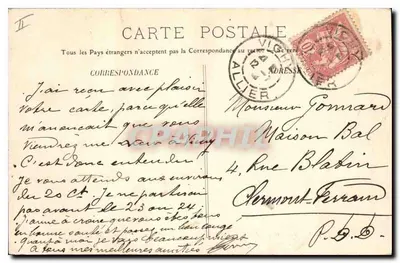 II
CARTE POSTALE
Tous les Pays étrangers n'acceptent pas la Correspondance au
CORRESPONDANCE
ADRESSE
VICHY
ALLIER
10
J'ai reçu avec plaisir
votre carte, parce qu'elle
m'anonçait que vous
Viendrez me
C'est donc entendu
Je vous attends aux environs
du 20 Ct. Je ne partirai
pas avant le 23 ou 24
J'aime à croire que vous êtes
en bonne santé et passez un
quant à moi je vais beaucoup mieux
à tous mes meilleures amitiés
Monsieur Gonnard
Maison Bal
4, Rue Blatin
Clermont-Ferrand
P. D. D.